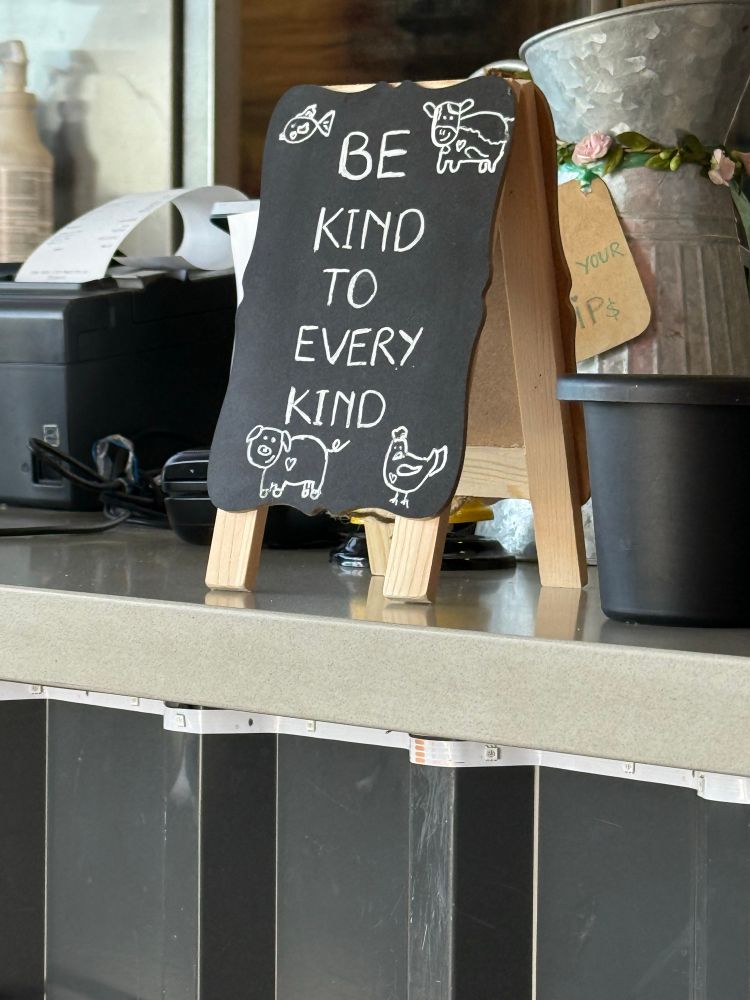 BE
KIND
TO
EVERY
KIND
YOUR